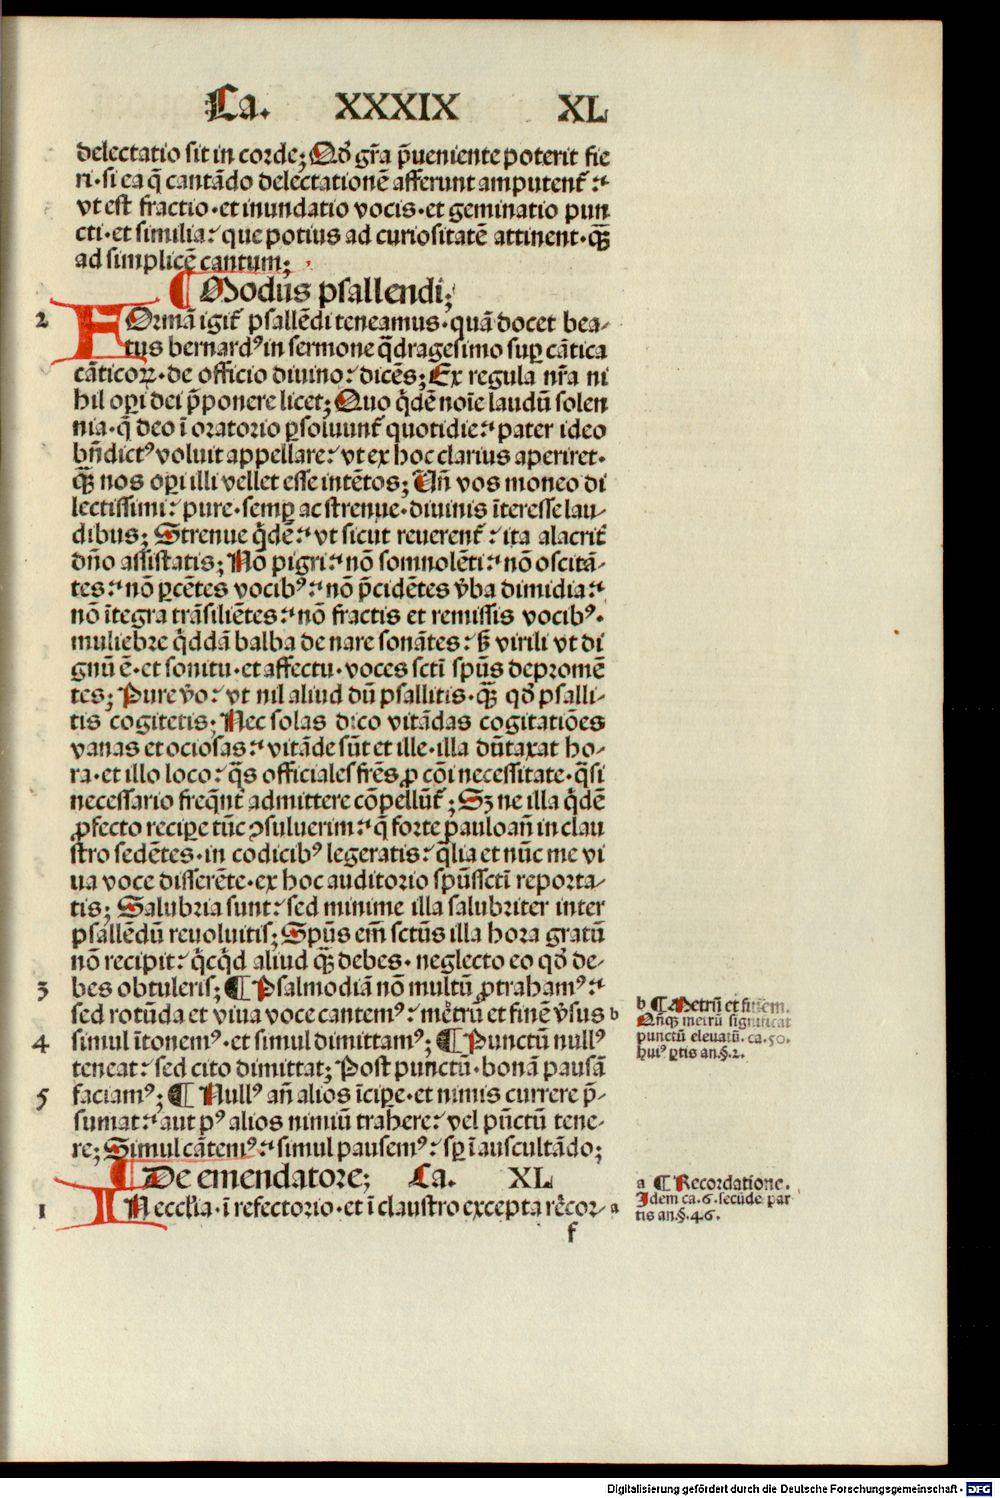 Ca. XXXIX XL
delectatio sit in corde; Qđ gr̃a p̃ueniente poterit fie
ri · si ea q̃ cantãdo delectationẽ afferunt amputent̃ :
vt est fractio · et inundatio vocis · et geminatio pun
cti · et similia: que potius ad curiositatẽ attinent · q̃ꝫ
ad simplicẽ cantum;
¶ Modus psallendi;
2 FOrmã igit̃ psallẽdi teneamus · quã docet bea-
tus bernardꝰ in sermone q̃dragesimo suꝑ cãtica
cãticoꝝ · de officio diuino: dicẽs; Ex regula nr̃a ni
hil oꝑi dei p̃ponere licet; Quo q̃dẽ noĩe laudũ solen
nia · q̃ deo ĩ oratorio ꝑsoluunt̃ quotidie: pater ideo
bñdictꝰ voluit appellare: vt ex hoc clarius aperiret ·
q̃ꝫ nos oꝑi illi vellet esse intẽtos; Uñ vos moneo di
lectissimi: pure · semꝑ ac strenue · diuinis ĩteresse lau-
dibus; Strenue q̃dẽ: vt sicut reuerent̃ : ita alacrit̃
dño assistatis; Nõ pigri: nõ somnolẽti: nõ oscitã-
tes: nõ ꝑcẽtes vocibꝰ: nõ p̃cidẽtes v̾ba dimidia:
nõ ĩtegra trãsiliẽtes: nõ fractis et remissis vocibꝰ ·
muliebre q̃ddã balba de nare sonãtes: sꝫ virili vt di
gnũ ẽ · et sonitu · et affectu · voces sctĩ spũs depromẽ
tes; Pure v̾o: vt nil aliud dũ psallitis · q̃ꝫ qđ psalli-
tis cogitetis; Nec solas dico vitãdas cogitatiões
vanas et ociosas: vitãde sũt et ille · illa dũtaxat ho-
ra · et illo loco: q̃s officiales frẽs ꝓ cõi necessitate · q̃si
necessario freq̃nt̃ admittere cõpellũt̃ ; Sꝫ ne illa q̃dẽ
ꝓfecto recipe tũc ↄsuluerim: q̃ forte pauloañ in clau
stro sedẽtes · in codicibꝰ legeratis: q̃lia et nũc me vi
ua voce disserẽte · ex hoc auditorio spũssctĩ reporta-
tis; Salubria sunt: sed minime illa salubriter inter
psallẽdũ reuoluitis; Spũs em̃ sctũs illa hora gratũ
nõ recipit: q̃cq̃d aliud q̃ꝫ debes · neglecto eo qđ de-
3 bes obtuleris; ¶ Psalmodiã nõ multũ ꝓtrahamꝰ:
sed rotũda et viua voce cantemꝰ: metrũ et finẽ v̾sus b
4 simul ĩtonemꝰ · et simul dimittamꝰ; ¶ Punctũ nullꝰ
teneat: sed cito dimittat; Post punctũ · bonã pausã
5 faciamꝰ; ¶ Nullꝰ añ alios ĩcipe · et nimis currere p̃-
sumat: aut pꝰ alios nimiũ trahere: vel pũctũ tene-
re; Simul cãtemꝰ: simul pausemꝰ: sꝑ ĩ auscultãdo;
¶ De emendatore; Ca. XL
1 IN ecclĩa · ĩ refectorio · et ĩ claustro excepta rẽcor- a
f
b ¶ Metrũ et finem.
Qñqꝫ metrũ significat
punctũ eleuatũ. ca. 50.
huiꝰ ꝑtis an. §. 2.
a ¶ Recordatione.
Idem ca. 6. secũde par
tis an. §. 4. 6.
Digitalisierung gefördert durch die Deutsche Forschungsgemeinschaft · DFG